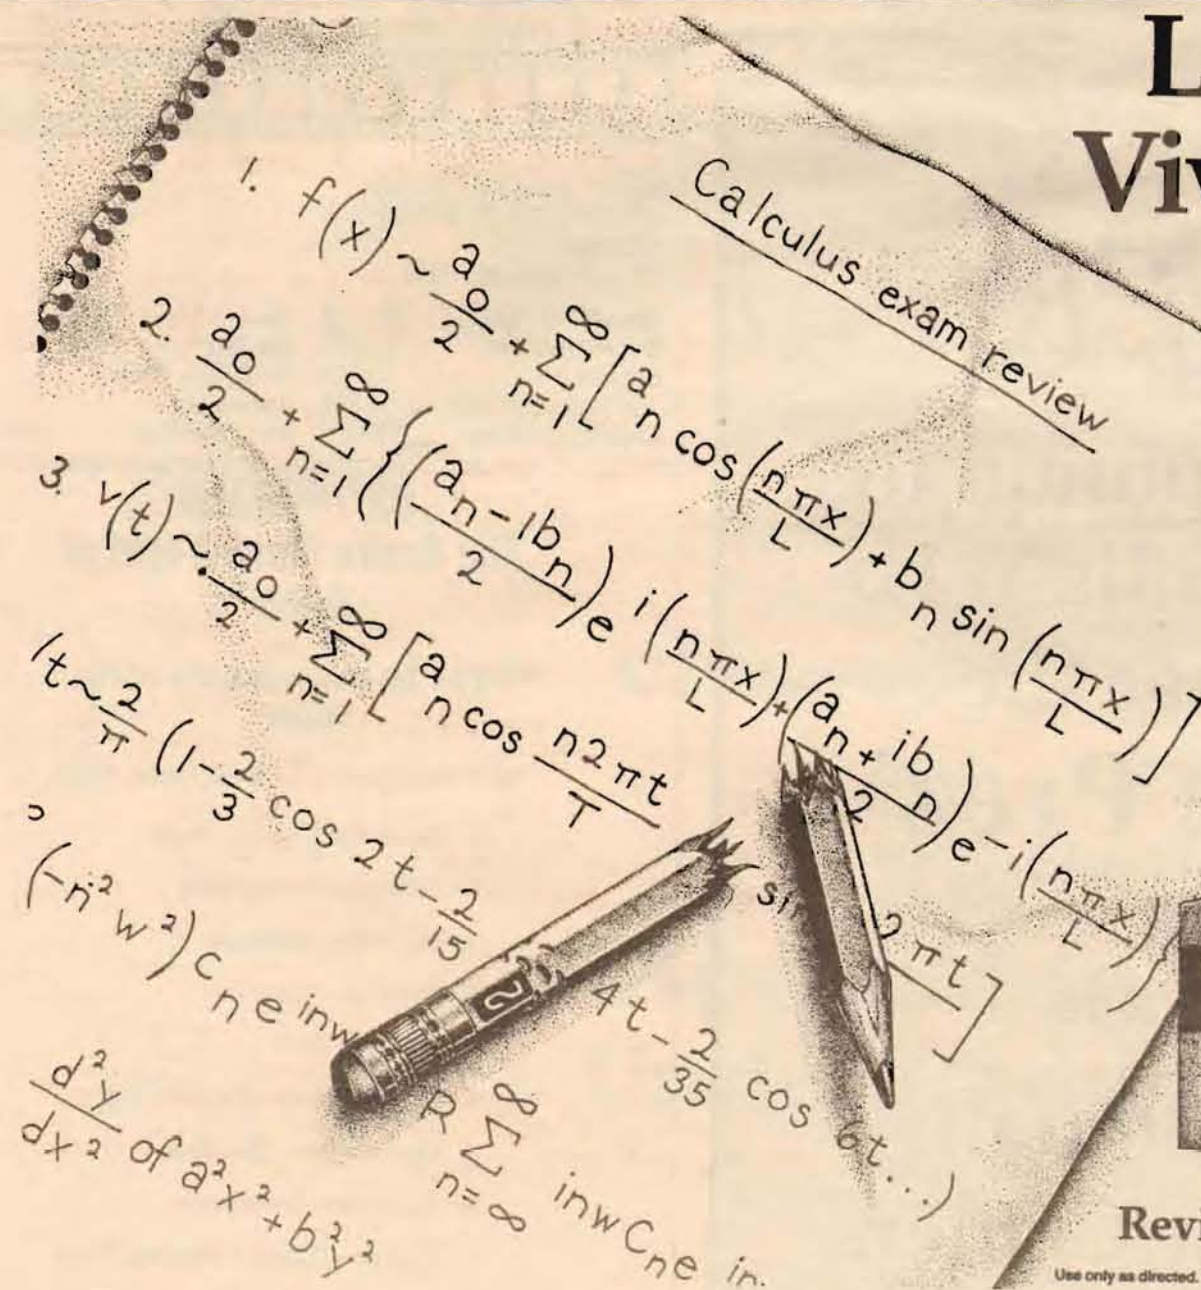 L
Viv
Calculus exam review
1. f(x) ~ a₀/2 + ∑_{n=1}^{∞} [a_n cos (nπx/L) + b_n sin (nπx/L)]
2. a₀/2 + ∑_{n=1}^{∞} {((a_n - ib_n)/2) e^{i(nπx/L)} + ((a_n + ib_n)/2) e^{-i(nπx/L)}}
3. v(t) ~ a₀/2 + ∑_{n=1}^{∞} [a_n cos n2πt/T si 2πt]
t ~ 2/π (1 - 2/3 cos 2t - 2/15 4t - 2/35 cos 6t...)
(-n²w²) C_n e^{inw} R ∑_{n=∞}^{∞} inw C_n e in.
d²y/dx² of a²x² + b²y²
2
Revi
Use only as directed.